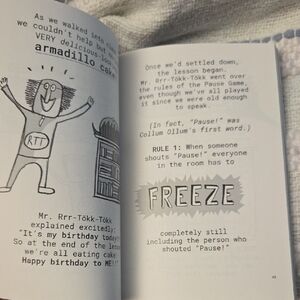 As we walked into
we couldn't help but
VERY delicious-loo
armadillo cake
RTT
Mr. Rrr-Tôkk-Tôkk
explained excitedly:
"It's my birthday today!
So at the end of the lesson
we're all eating cake
Happy birthday to ME!"
Once we'd settled down,
the lesson began.
Mr. Rrr-Tôkk-Tôkk went over
the rules of the Pause Game,
even though we've all played
it since we were old enough
to speak.
(In fact, "Pause!" was
Collum Ollum's first word.)
RULE 1: When someone
shouts "Pause!" everyone
in the room has to
FREEZE
completely still
including the person who
shouted "Pause!"